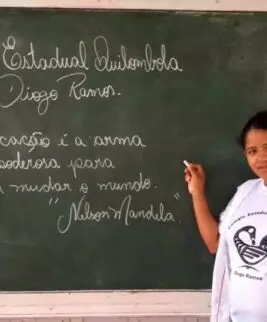 Estadual Quilombola
Diogo Ramos.
cação é a arma
poderosa para
mudar o mundo.
"Nelson Mandela"
Colégio Estadual
Diogo Ramos